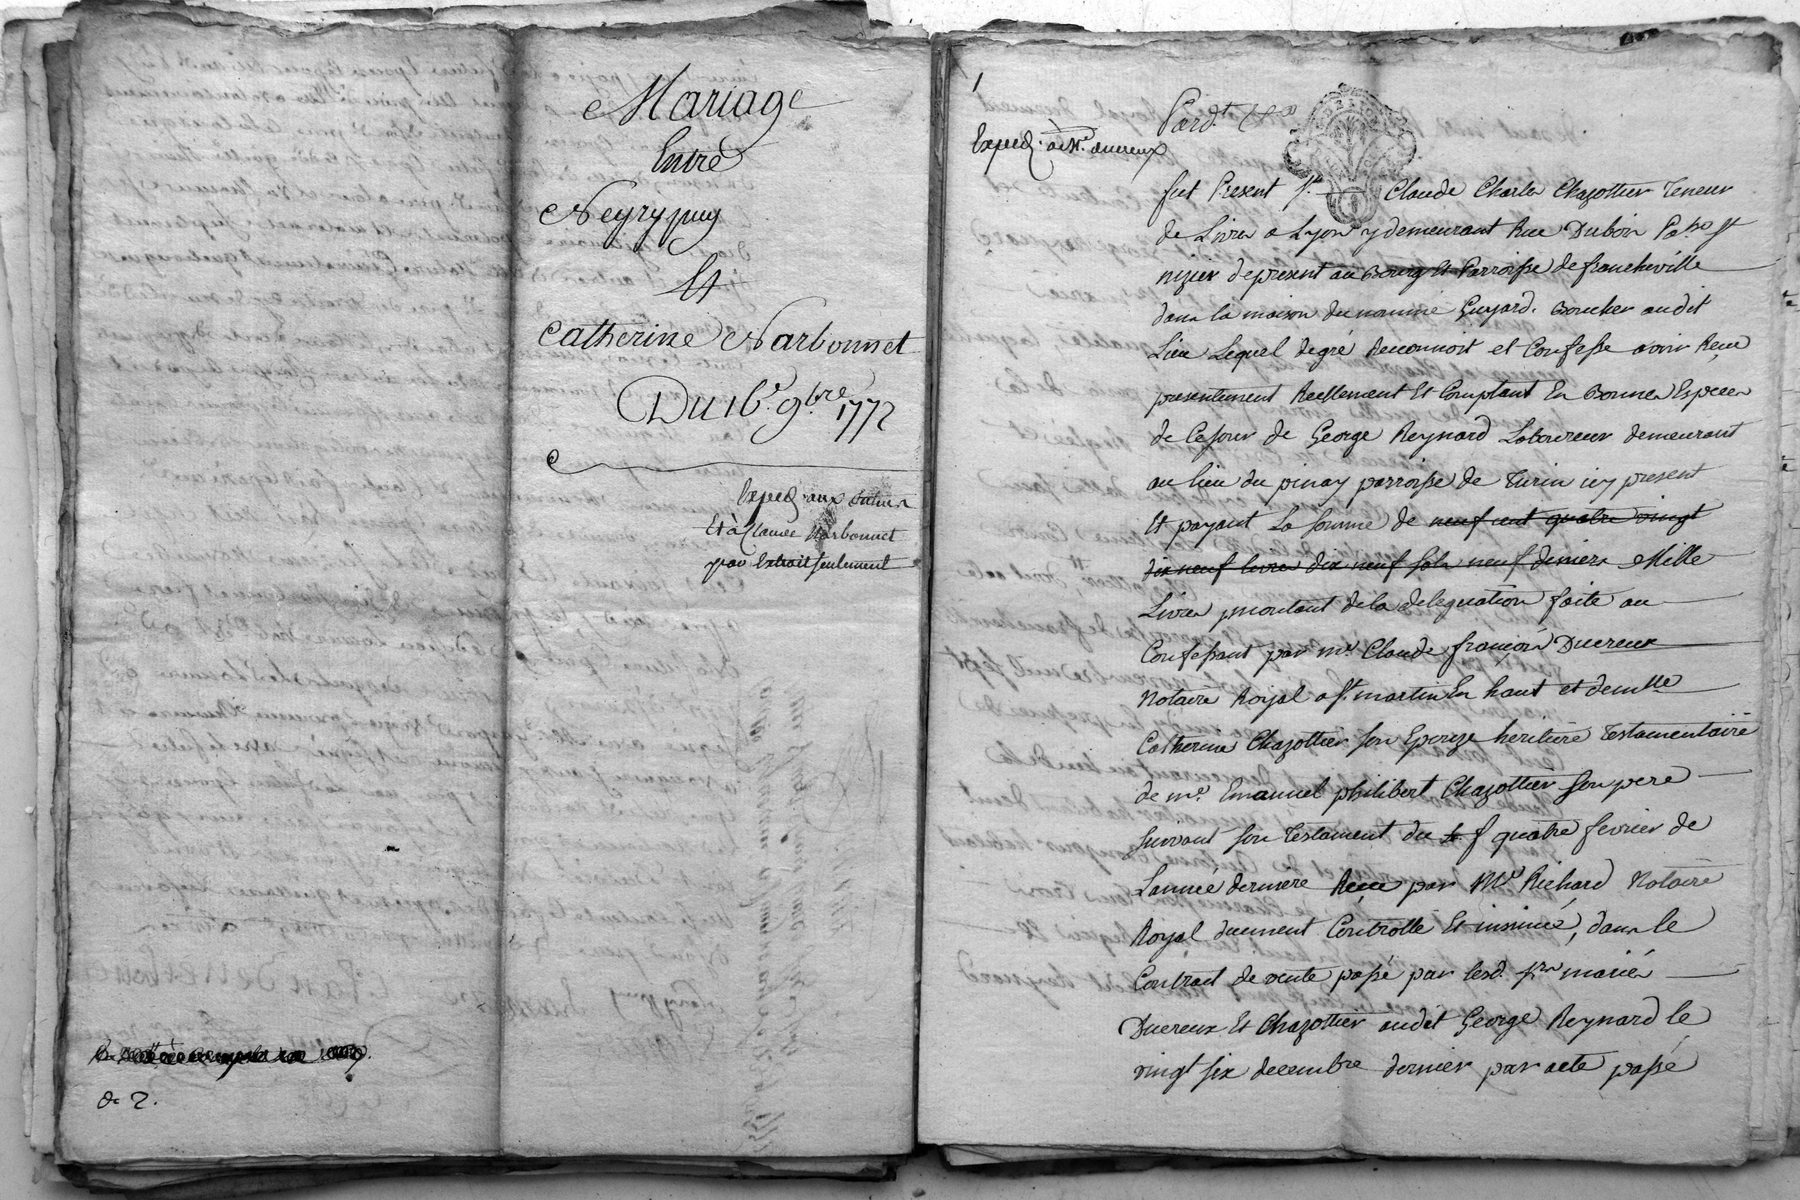 Mariage
Entre
Neyrypuy
Et
Catherine Narbonnet
Du 16e. 9bre 1772
Exped. aux
Et à Claude Narbonnet
par Extrait seulement
de 2.
1
Pard.t
Exped. à Me. ducreux
fut Present Sr. Claude Charles Chazottier Teneur
de Livres a Lyon y demeurant Rue Dubois Pa.sse St
nizier de present au Bourg Et Parroisse de francheville
dans la maison du nommé Guyard. Boucher audit
Lieu Lequel de gré Reconnoit et Confesse avoir Reçu
presentement Reellement Et Comptant En Bonnes Especes
de Cejour de George Reynard Laboureur demeurant
au lieu du pinay parroisse de Turin icy present
Et payant La somme de neuf cent quatre vingt
dix neuf livres dix neuf sols neuf deniers Mille
Livres montant de la delegation faite au
Confessant par me. Claude françois Ducreux
Notaire Royal a St. martin En haut et demlle
Catherine Chazottier son Epouze heritiere Testamentaire
de me. Emanuel philibert Chazottier son pere
suivant son Testament du quatre fevrier de
L'année derniere Reçu par Me Richard Notaire
Royal duement Controllé Et insinué, dans le
Contract de vente passé par lesd. srs mariés
Ducreux Et Chazottier audit George Reynard le
vingt six decembre dernier par acte passé